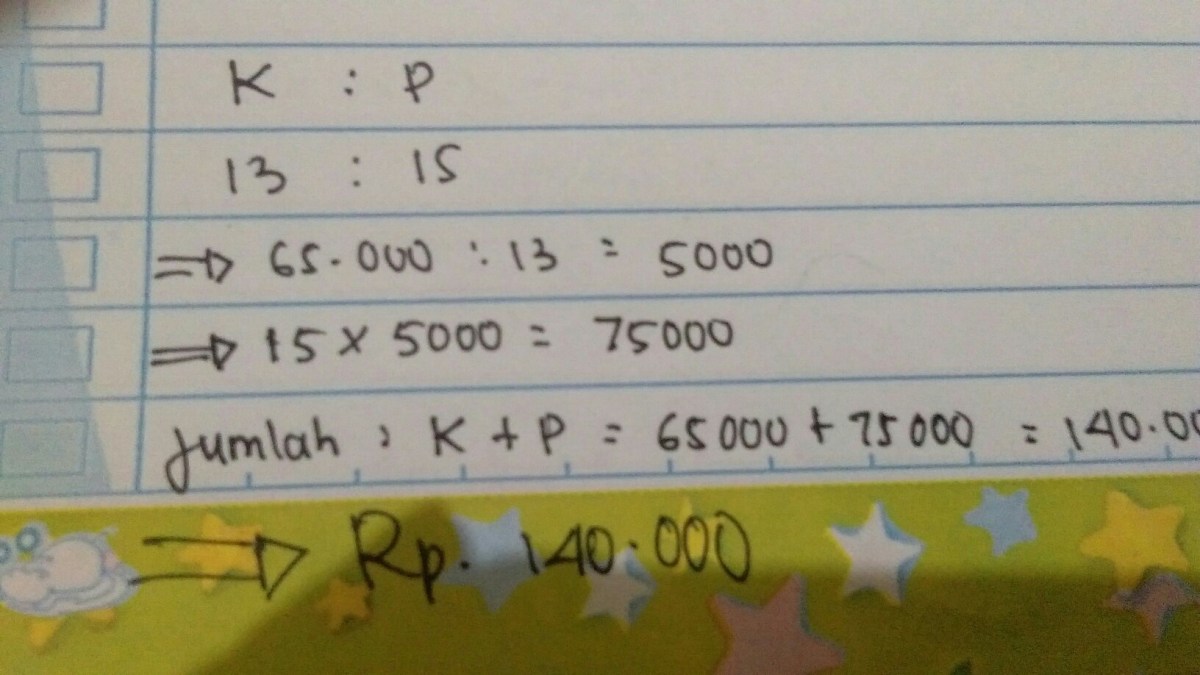 K : P
13 : 15
⇒ 65.000 : 13 = 5000
⇒ 15 x 5000 = 75000
Jumlah : K + P = 65000 + 75000 = 140.00
⇒ Rp. 140.000